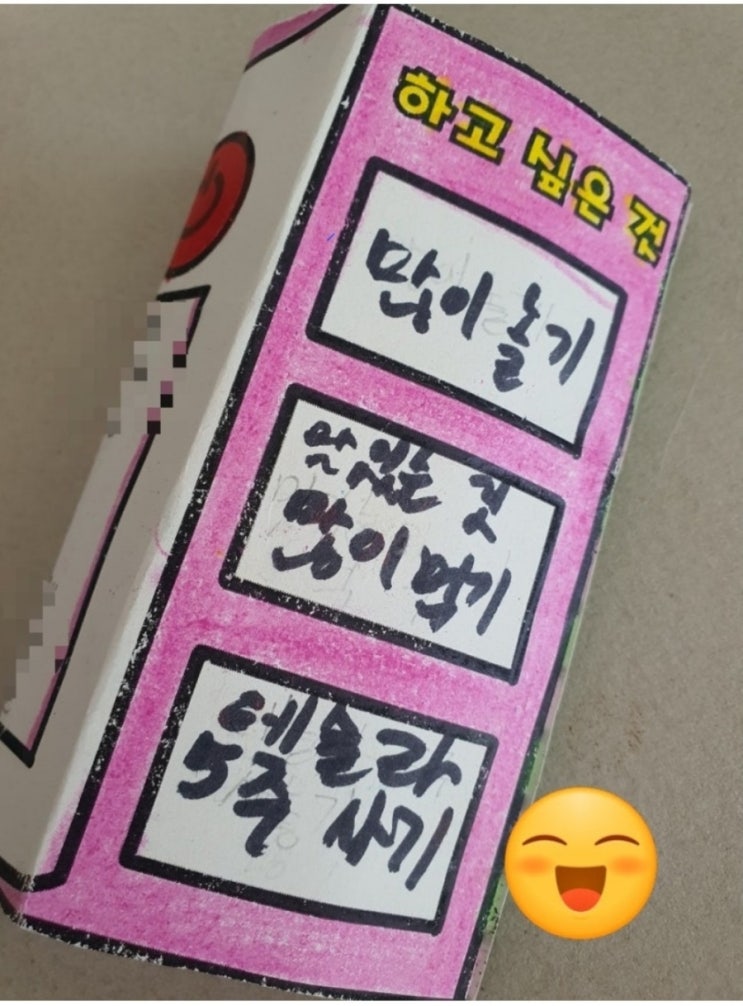 하고 싶은 것
많이 놀기
맛있는 것
많이 먹기
테슬라
5주 사기